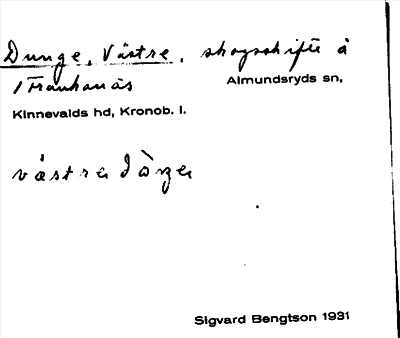 Dunge, Västre, skogsskifte å
Trånhanäs Almundsryds sn,
Kinnevalds hd, Kronob. l.
västrə
Sigvard Bengtson 1931